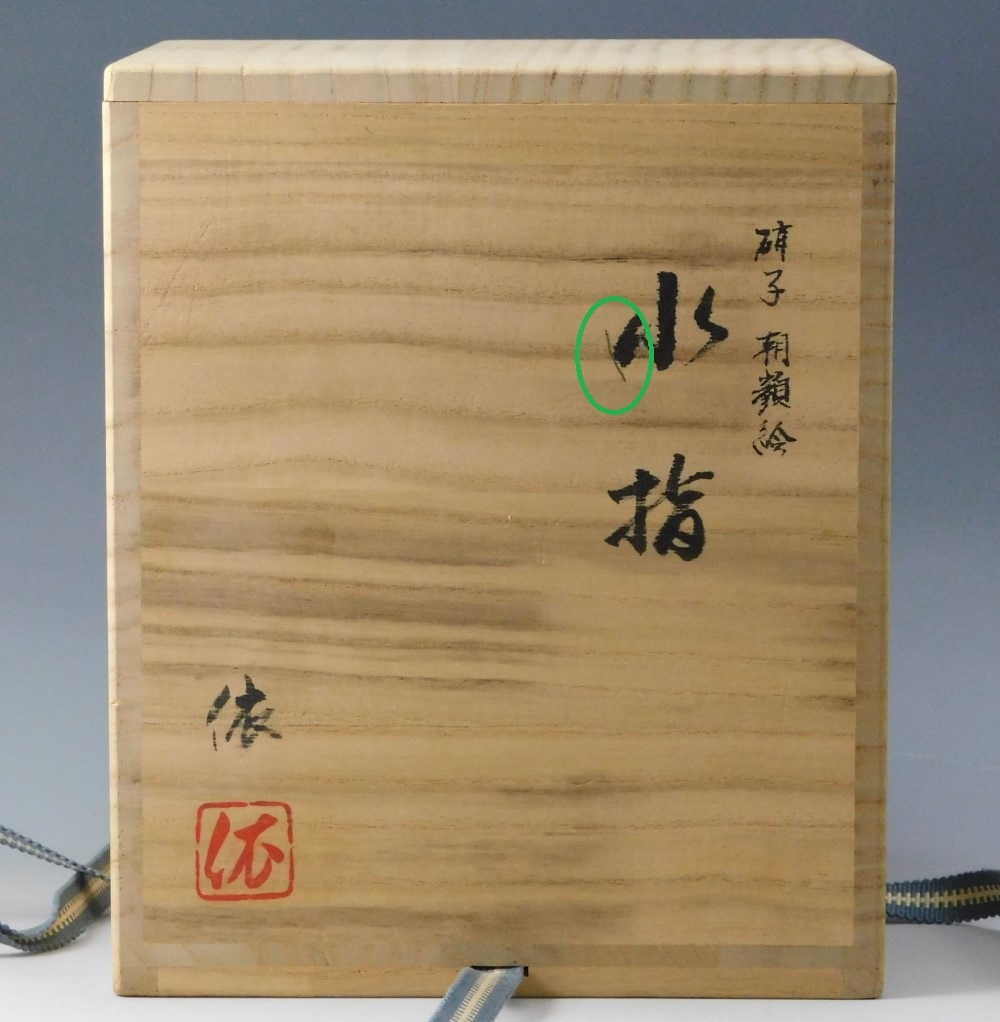 硝子 朝顔絵
水指
依
依